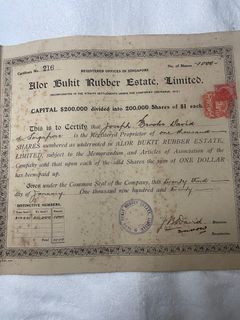 Certificate No. 216
No. of Shares 1000
REGISTERED OFFICES IN SINGAPORE
Alor Bukit Rubber Estate, Limited.
CAPITAL $200,000 divided into 200,000 Shares of $1 each
This is to Certify that Joseph Brooke David
of Singapore is the Registered Proprietor of one thousand
SHARES numbered as undernoted in ALOR BUKIT RUBBER ESTATE,
LIMITED, subject to the Memorandum and Articles of Association of the
Company and that upon each of the said Shares the sum of ONE DOLLAR
has been paid up.
Given under the Common Seal of the Company, this twenty third
day of January one thousand nine hundred and
DISTINCTIVE NUMBERS.